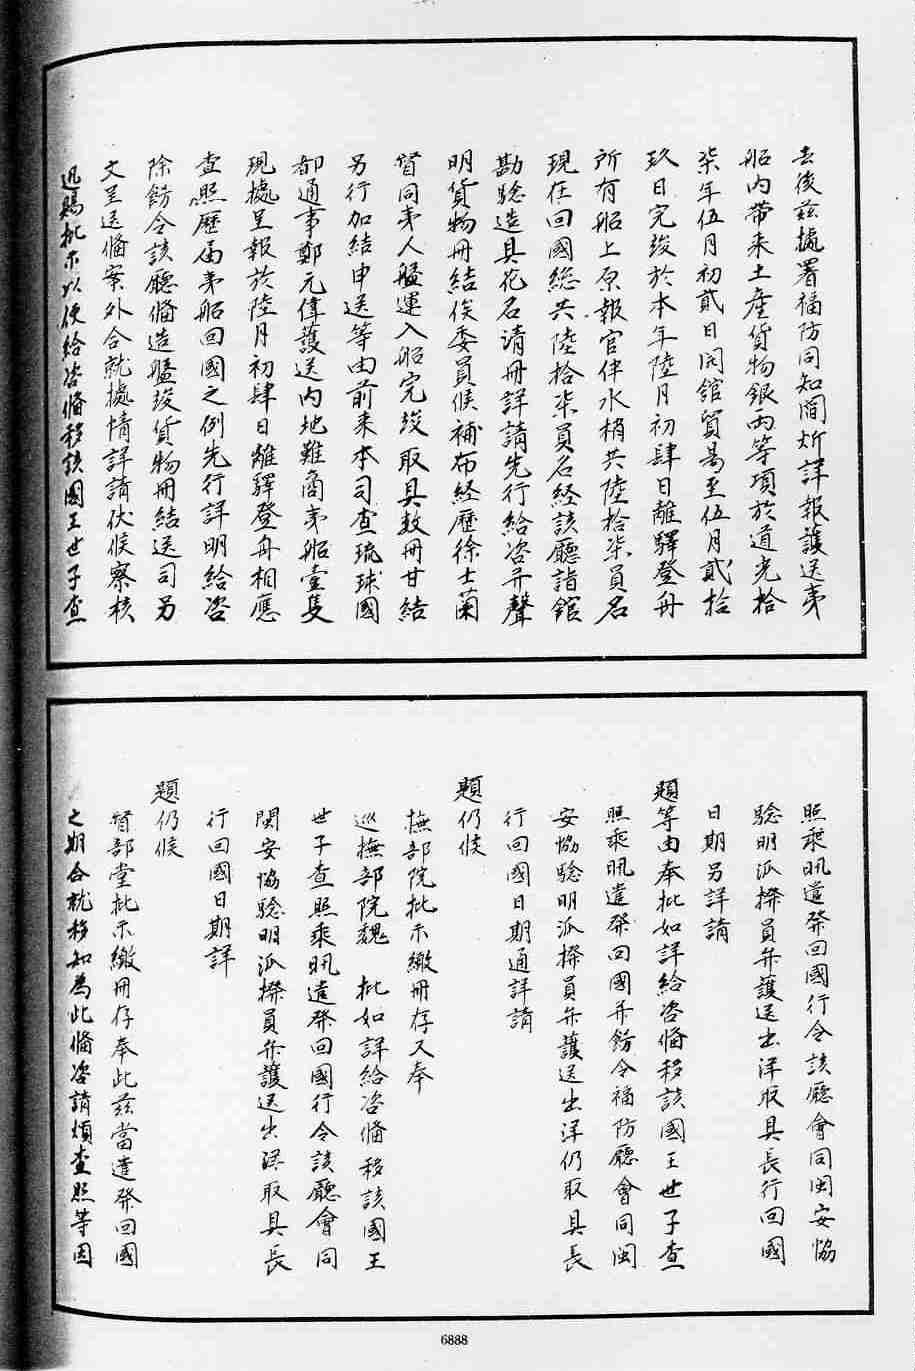 去後茲據署福防同知闁炘詳報護送弟
船內帶來土產貨物銀兩等項於道光拾
柒年伍月初貳日開館貿易至伍月貳拾
玖日完竣於本年陸月初肆日離驛登舟
所有船上原報官伴水梢共陸拾柒員名
現在回國總共陸拾柒員名經該廳詣館
勘驗造具花名清冊詳請先行給咨并聲
明貨物冊結俟委員候補布經歷徐士蘭
督同弟人艋運入船完竣取具数冊甘結
另行加結申送等由前來本司查琉球國
都通事鄭元偉護送內地難商弟船壹隻
現據呈報於陸月初肆日離驛登舟相應
查照歷届弟船回國之例先行詳明給咨
除飭令該廳俻造艋竣貨物冊結送司另
文呈送俻案外合就據情詳請伏候察核
迅賜批示以便給咨俻移該國王世子查
照乘汛遣發回國行令該廳會同閩安協
驗明派撥員弁護送出洋取具長行回國
日期另詳請
題等由奉批如詳給咨俻移該國王世子查
照乘汛遣發回國并飭令福防廳會同閩
安協驗明派撥員弁護送出洋仍取具長
行回國日期通詳請
題仍候
撫部院批示繳冊存又奉
巡撫部院魏 批如詳給咨俻移該國王
世子查照乘汛遣發回國行令該廳會同
閩安協驗明派撥員弁護送出洋取具長
行回國日期詳
題仍候
督部堂批示繳冊存奉此茲當遣發回國
之期合就移知為此俻咨請煩查照等因
6888